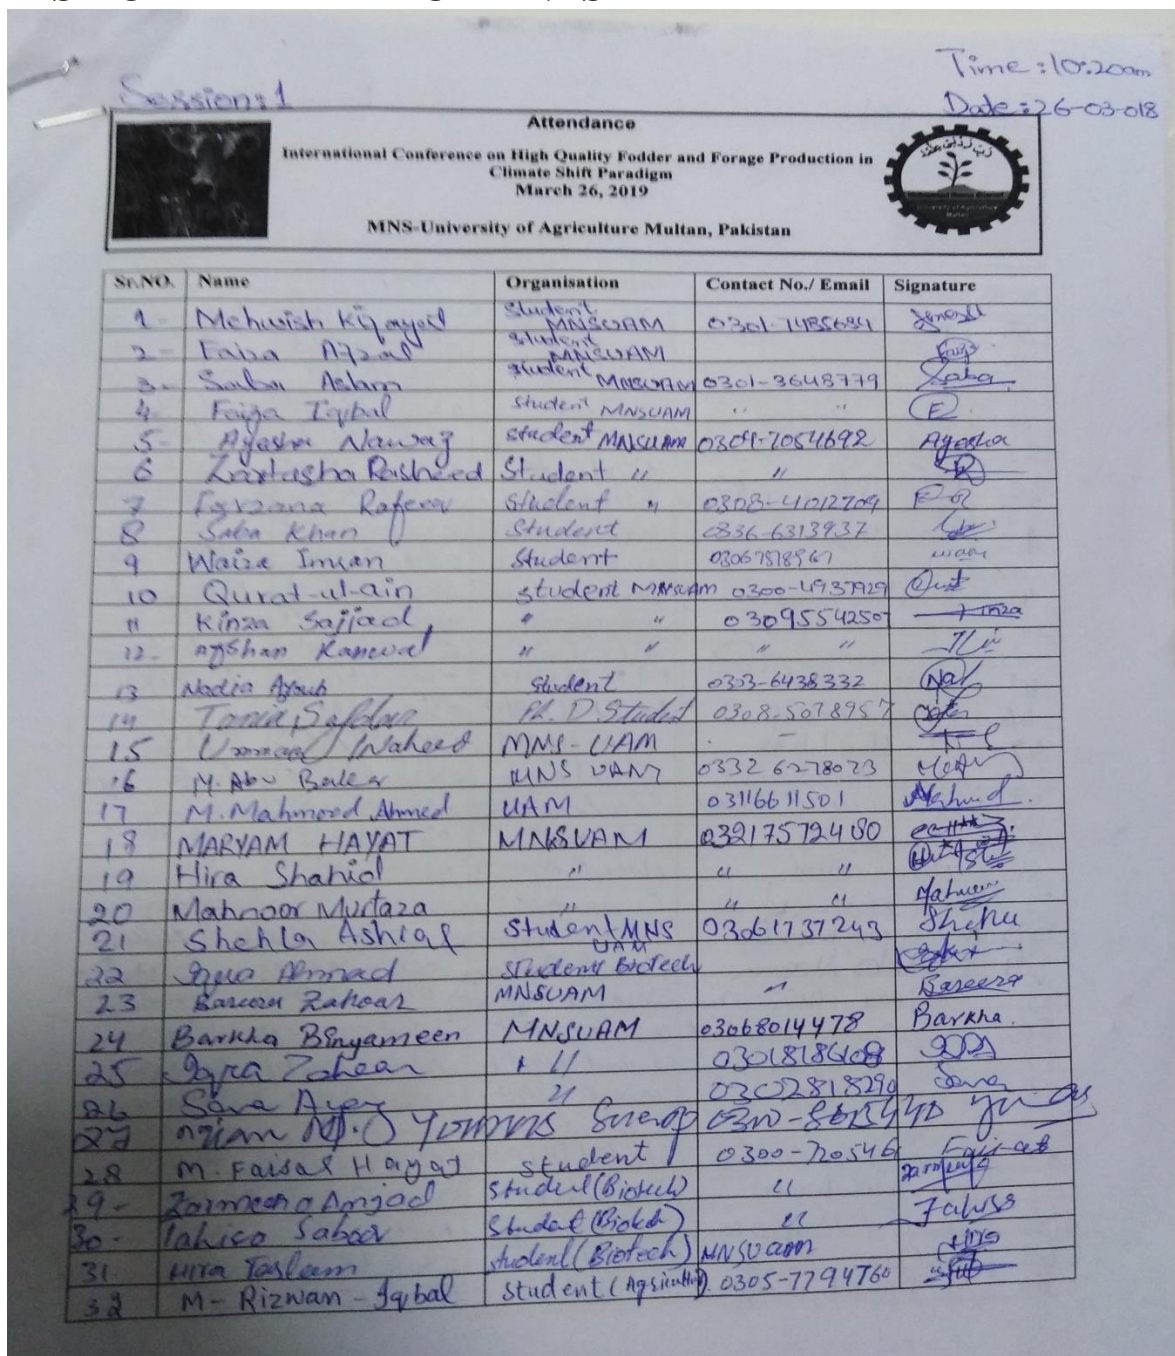 Time : 10:20am
Session: 1
Date : 26-03-018
Attendance
International Conference on High Quality Fodder and Forage Production in
Climate Shift Paradigm
March 26, 2019
MNS-University of Agriculture Multan, Pakistan
Sr.NO. Name Organisation Contact No./ Email Signature
1- Mehwish Student MNSUAM 0301-7485684
2- Faiza Afzal Student MNSUAM
3- Saba Aslam Student MNSUAM 0301-3648779 Saba
4- Faiza Iqbal Student MNSUAM " "
5- Ayesha Nawaz Student MNSUAM Ayesha
6 Zartasha Rasheed Student " "
7 Farzana Student " 0308-4012709
8 Saba Khan Student 0336-6313937
9 Waiza Imran Student
10 Qurat-ul-ain Student MNSUAM 0300-4937929
11 Kinza Sajjad " " 03095542507 Kinza
12- Afshan Kanwal " " " "
13 Nadia Ayoub Student 0303-6438332
14 Tania Safdar Ph.D. Student 0308-5078957
15 Waheed MNS-UAM -
16 M. Abu Baker MNS UAM 0332 6278023
17 M. Mahmood Ahmed UAM 03116611501 Mahmood
18 MARYAM HAYAT MNSUAM 03217572480
19 Hira Shahid " " "
20 Mahnoor Murtaza " " " Mahnoor
21 Shehla Ashraf Student MNS UAM 03061737243
22 Iqra Ahmad Student Biotech
23 Bareera Zahoor MNSUAM " Bareera
24 Barkha Binyameen MNSUAM 03068014478 Barkha.
25 Iqra Zaheer "
26 " 0302818290
27
28 M. Faisal Hayat Student 0300-720546
29- Zarmeena Amjad Student (Biotech) "
30- Saboor Student (Biotech) "
31. Hira Tasleem Student (Biotech) MNSUAM Hira
32 M- Rizwan - Iqbal Student (Agriculture) 0305-7794760